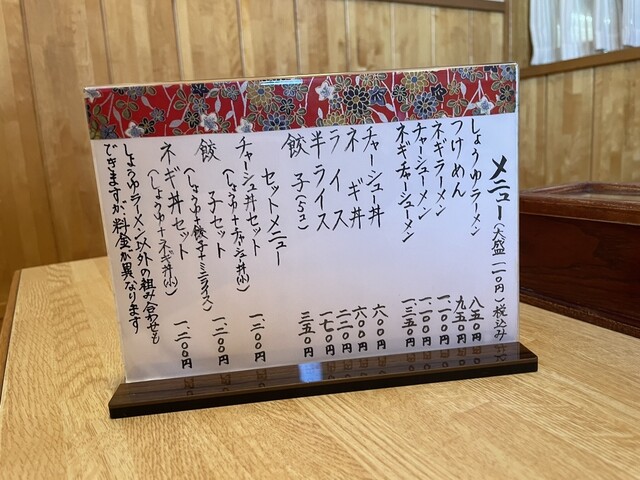 メニュー(大盛一一〇円)税込み
しょうゆラーメン 八五〇円
つけめん 九五〇円
ネギラーメン 一、一〇〇円
チャーシューメン 一、一〇〇円
ネギチャーシューメン 一、三五〇円
チャーシュー丼 六〇〇円
ネギ丼 六〇〇円
ライス 二二〇円
半ライス 一七〇円
餃子(5コ) 三五〇円
セットメニュー
チャーシュー丼セット 一、三〇〇円
(しょうゆ+チャーシュー丼(小)
餃子セット 一、二〇〇円
(しょうゆ+餃子+ミニライス)
ネギ丼セット 一、三〇〇円
(しょうゆ+ネギ丼(小)
しょうゆラーメン以外の組み合わせも
できますが、料金が異なります